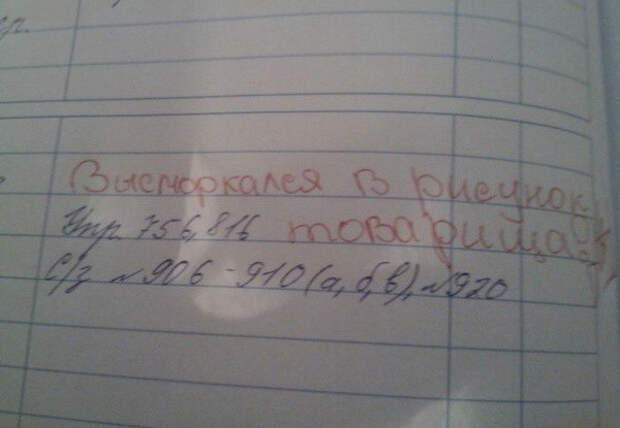 Высморкался в рисунок
товарища
Упр. 756, 816
С/з №906-910(а,б,в), №920